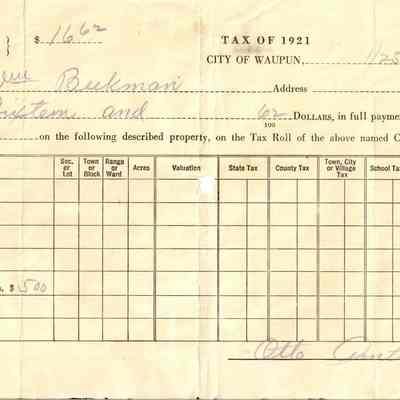 } $ 16 62 TAX OF 1921
CITY OF WAUPUN, 1/25
Beekman Address
and 62/100 DOLLARS, in full payme
on the following described property, on the Tax Roll of the above named C
Sec. or Lot Town or Block Range or Ward Acres Valuation State Tax County Tax Town, City or Village Tax School Tax
$ 500
Otto